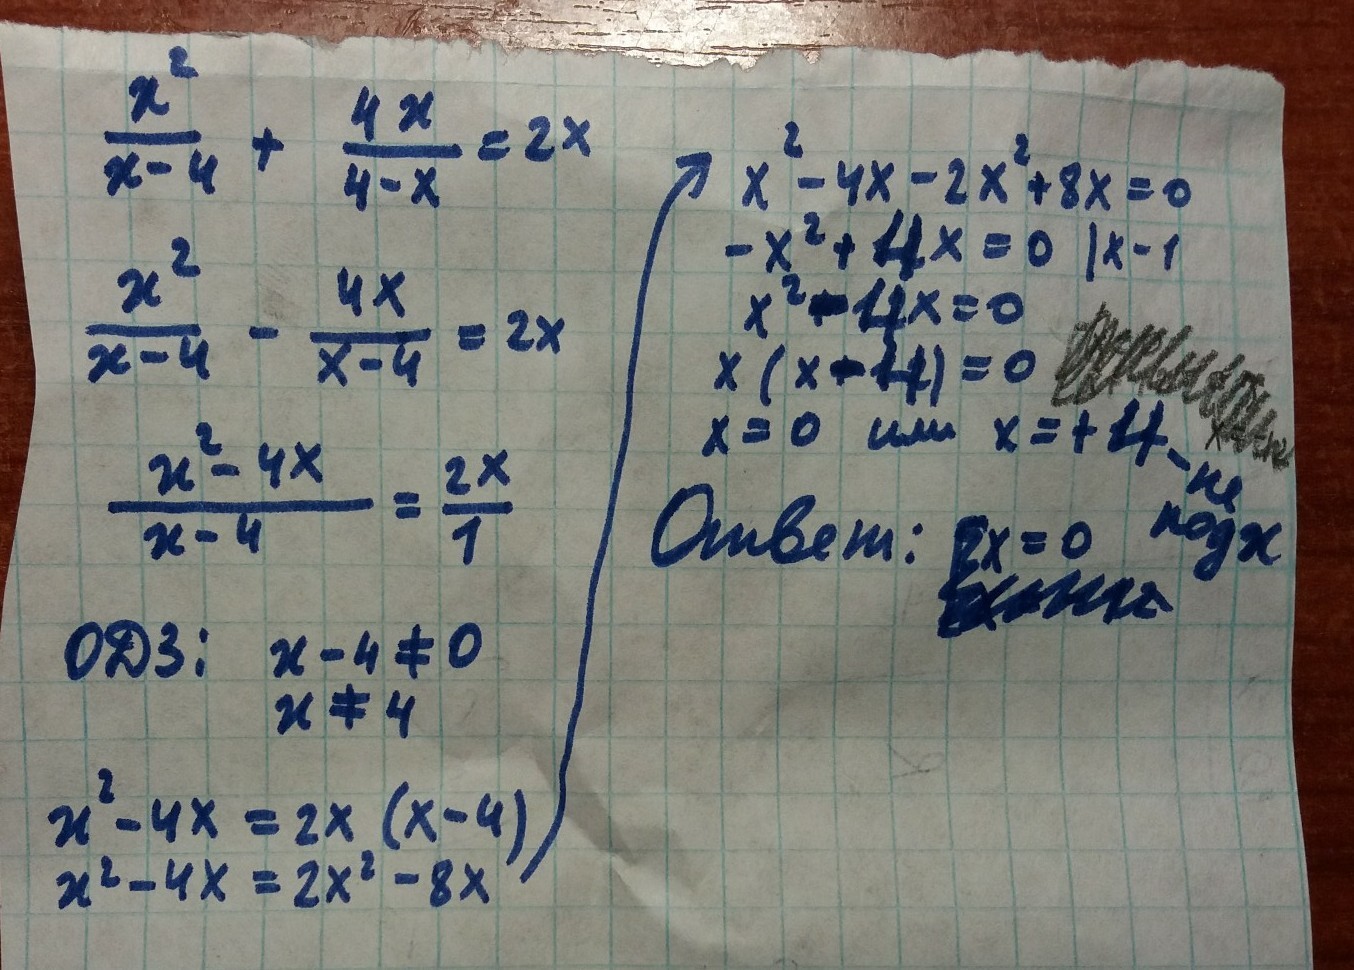 x²/(x-4) + 4x/(4-x) = 2x
x²/(x-4) - 4x/(x-4) = 2x
(x²-4x)/(x-4) = 2x/1
ОДЗ: x-4≠0
x≠4
x²-4x = 2x (x-4)
x²-4x = 2x²-8x
x²-4x-2x²+8x=0
-x²+4x=0 |x-1
x²-4x=0
x(x-4)=0
x=0 или x=+4 - не
подх
Ответ: x=0